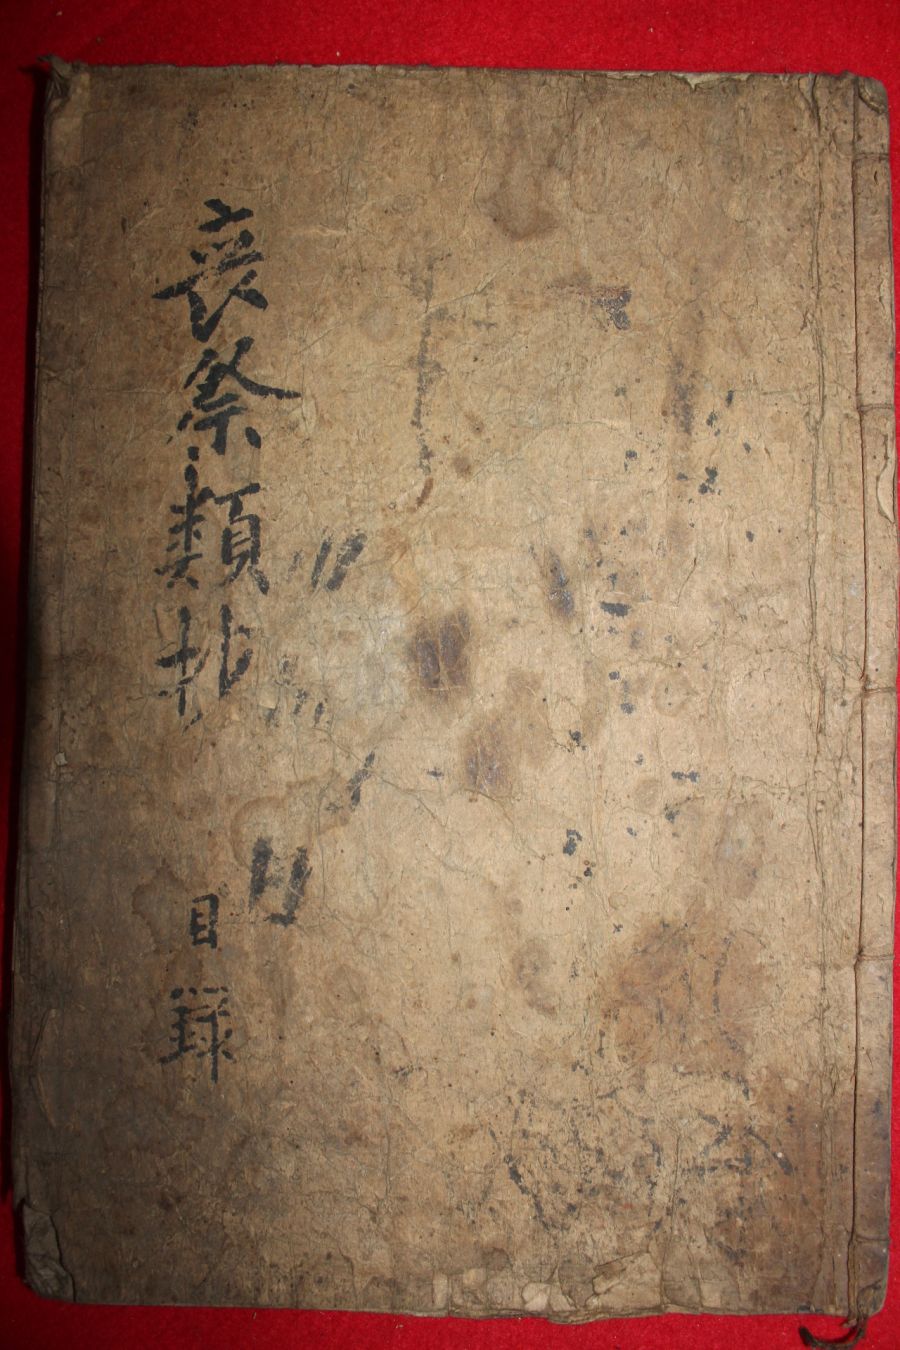 喪祭類抄 目錄